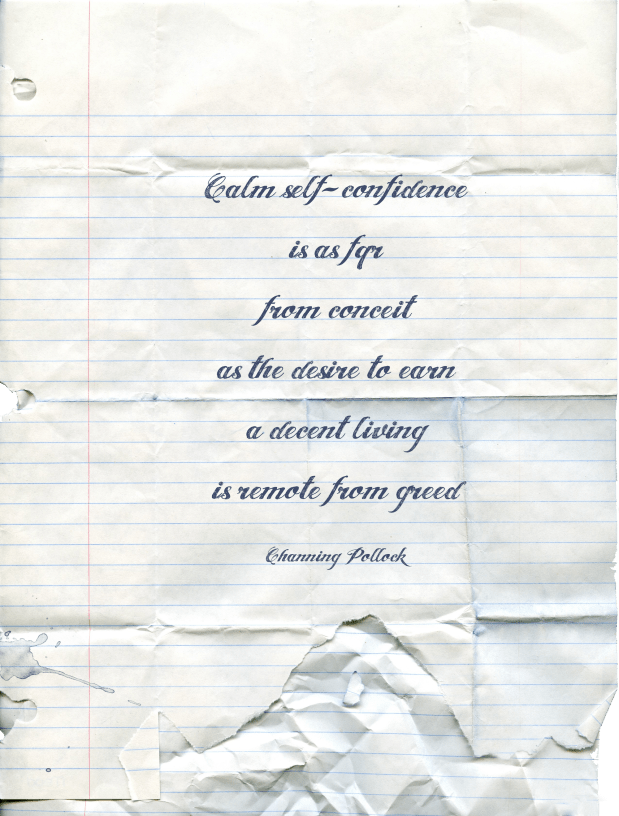 Calm self-confidence
is as fqr
from conceit
as the desire to earn
a decent living
is remote from greed
Channing Pollock